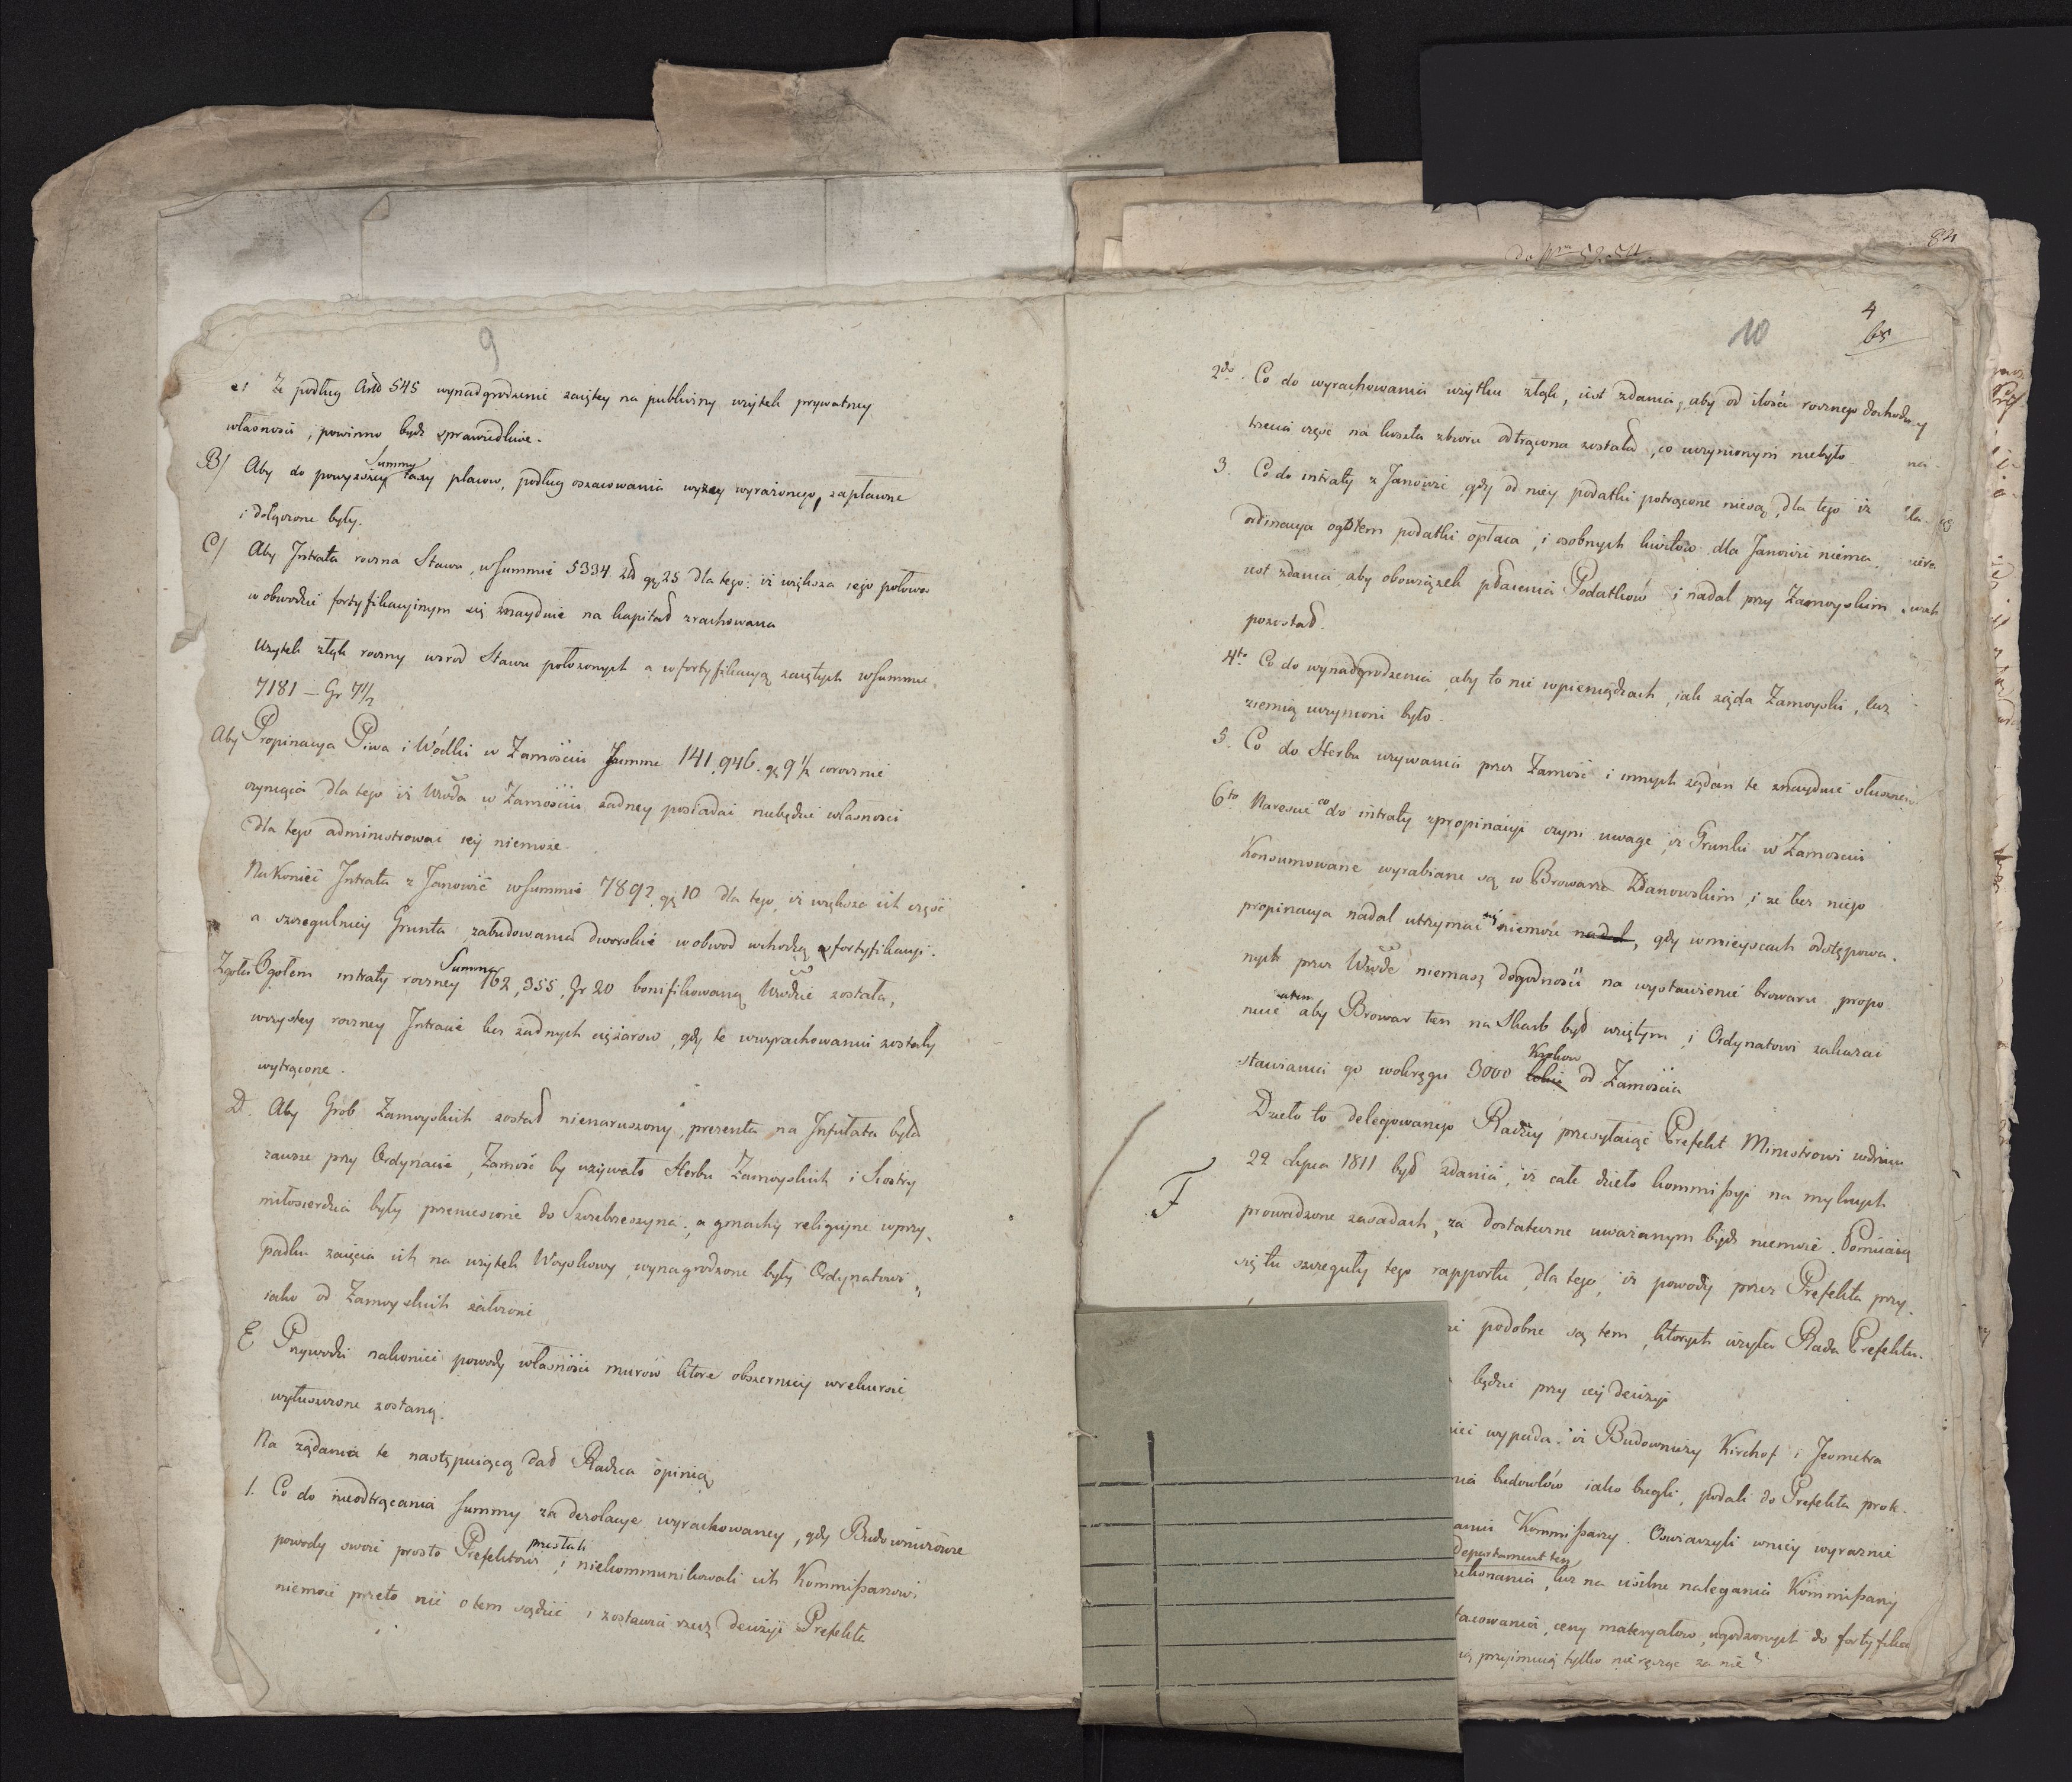 9
e) Ze podług Artł 545 wynadgrodzenie zaiętey na publiczny użytek prywatney
własności, powinno bydź sprawiedliwe.
B) Aby do powyższey Summy taxy placow, podług oszacowania wyżey wyrażonego, zapłacone
i dołączone były.
C) Aby Intrata roczna Stawu, w Summie 5334 zł gr 25 dla tego: iż większa iego połowa
w obwodzie fortyfikacyinym się znayduie na kapitał zrachowana
Użytek złąk roczny wzrod Stawu położonych a w fortyfikacyą zaiętych w Summie
7181 – Gr 7 1/2
Aby Propinacya Piwa i Wódki w Zamościu Summe 141,946. gr 9 1/2 corocznie
czyniąca dla tego iż Wrda w Zamościu żadney posiadać niebędzie własności
dla tego administrować iey niemoże.
Nakoniec Intrata z Janowic w Summie 7892 gr 10 dla tego, iż większa ich część
a szczegulniey Grunta, zabudowania dworskie w obwod wchodzą fortyfikacyi.
Zgoła Ogołem intraty roczney Summa 162,355, Gr 20 bonifikowaną Wrdzie została,
wszystkey roczney Intracie bez żadnych ciężarow, gdy te w wyrachowaniu zostały
wytrącone.
D. Aby Grob Zamoyskich został nienaruszony, prezenta na Infułata była
zawsze przy Ordynacie, Zamość by używało Herbu Zamoyskich i Siostry
miłosierdzia były przeniesione do Szczebrzeszyna, a gmachy religijne w przy„
padku zaięcia ich na użytek Woyskowy, wynagrodzone były Ordynatowi„
iako od Zamoyskich założone
E Przywodzi nakoniec powody własności murów które obszerniey w rekursie
wyłuszczone zostaną.
Na żądania te następuiącą dał Radzca opinią
1. Co do nieodtrącania Summy za dezolacye wyrachowaney, gdy Budowniczowie
powody swoie prosto Prefektowi przesłali i niekommunikowali ich Kommissarzowi
niemoże przeto nic o tem sądzić i zostawia rzecz decizyi Prefekta
84
10
4
65
2do. Co do wyrachowania użytku złąk, iest zdania, aby od ilości rocznego dochodu
trzecia część na koszta zbioru odtrącona została, co uczynionym niebyło
3. Co do intraty z Janowic, gdy od niey podatki potrącone niesą, dla tego iż
ordinacya ogółem podatki opłaca, i osobnych kwitów dla Janowic niema,
iest zdania aby obowiązek płacenia Podatków i nadal przy Zamoyskim
pozostał.
4to Co do wynadgrodzenia, aby to nie w pieniądzach, iak żąda Zamoyski, lecz
ziemią uczynione było.
5. Co do Herbu używania przez Zamość i innych żądań te znayduie słuszne
6to Nareszcie co do intraty z propinacyi czyni uwage, iż Trunki w Zamościu
Konsumowane wyrabiane są w Browarze Zdanowskim, i że bez niego
propinacya nadal utrzymać się niemoże nadal, gdy w mieyscach odstępowa„
nych przez Wrdę niemasz dogodności na wystawienie browaru, propo
nuie aby Browar ten na Skarb był wziętym, i Ordynatowi zakazać
stawiania go w okręgu 3000 łokci Krokow od Zamościa
Dzieło to delegowanego Radzcy przesyłaiąc Prefekt Ministrowi w dniu
22 Lipca 1811 był zdania, iż całe dzieło kommissyi na mylnych
F prowadzone zasadach, za dostateczne uważanym bydź niemoże. Pomiiaią
się tu szczeguły tego rapportu, dla tego, iż powody przez Prefekta przy„
podobne są tem, których użyła Rada Prefektu.
będzie przy iey decizyi
wypada, iż Budowniczy Kirchof i Jeometra
budowlów iako biegli, podali do Prefekta prok.
Kommissarzy. Oswiadczyli w niey wyraznie
Departament ten
lecz na usilne nalegania Kommissarzy
ceny materyałow, ugodzonych do fortyfika
przyimuią tylko nie ręcząc za nie